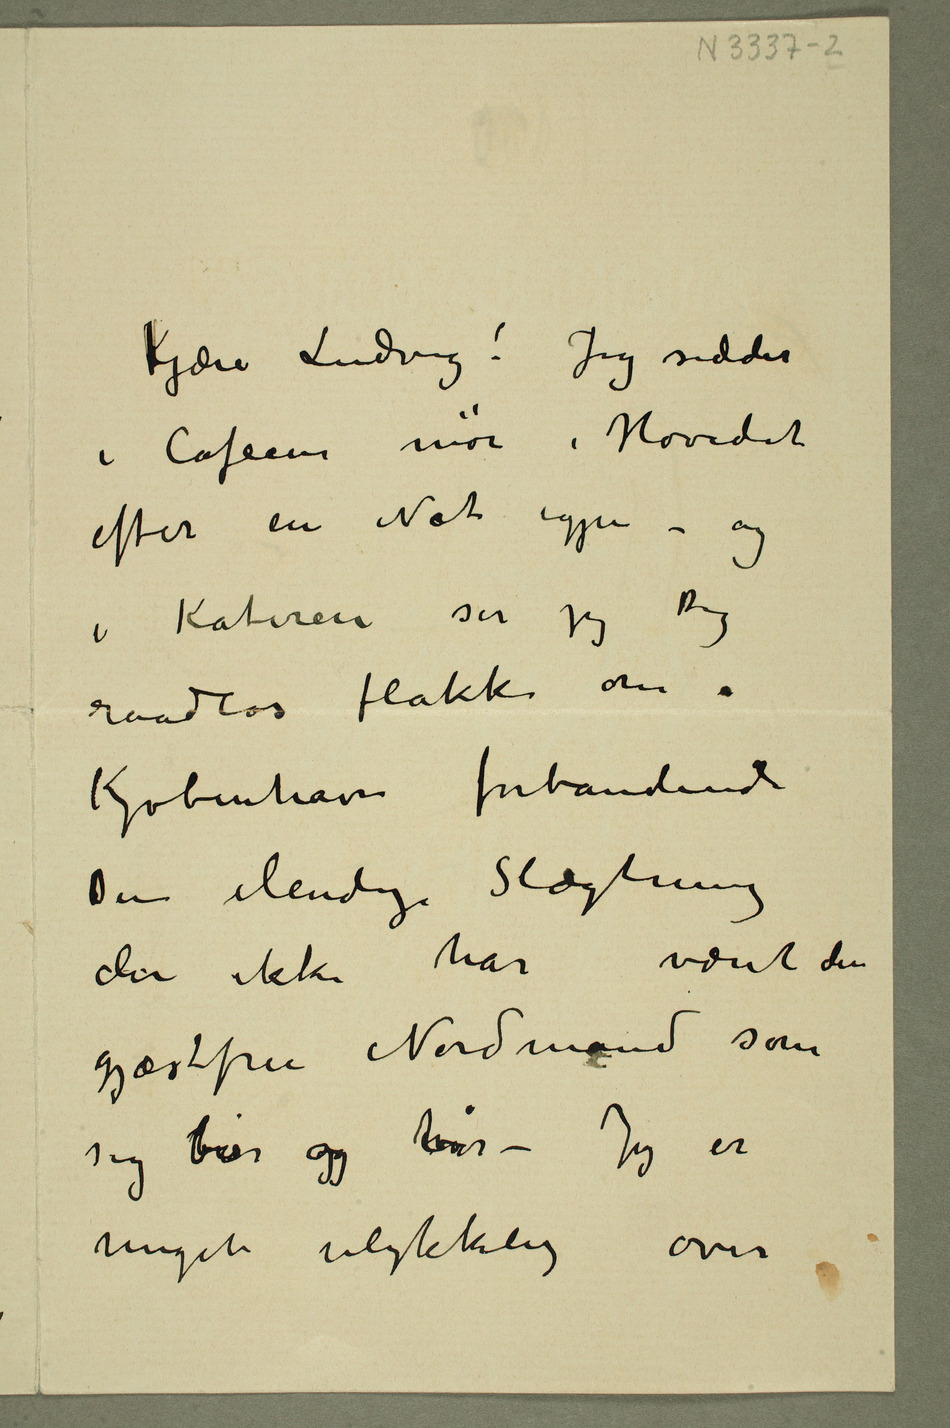 N 3337-2
Kjære Ludvig! Jeg sidder
i Cafeen mör i Hovedet
efter en Nat igjen – og
i Kateren ser jeg Dig
raadløs flakke om i
Kjøbenhavn forbandende
Din elendige Slægtning
der ikke har været den
gjæstfrie Nordmand som
sig bør og hør – Jeg er
meget ulykkelig over